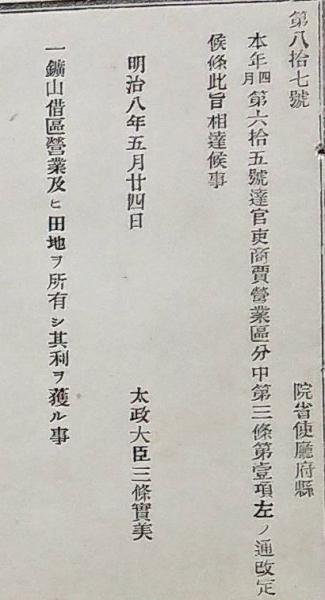 第八拾七號
院省使廳府縣
本年四月第六拾五號達官吏商賈營業區分中第三條第壹項左ノ通改定
候條此旨相達候事
明治八年五月廿四日
太政大臣三條實美
一鑛山借區營業及ヒ田地ヲ所有シ其利ヲ獲ル事